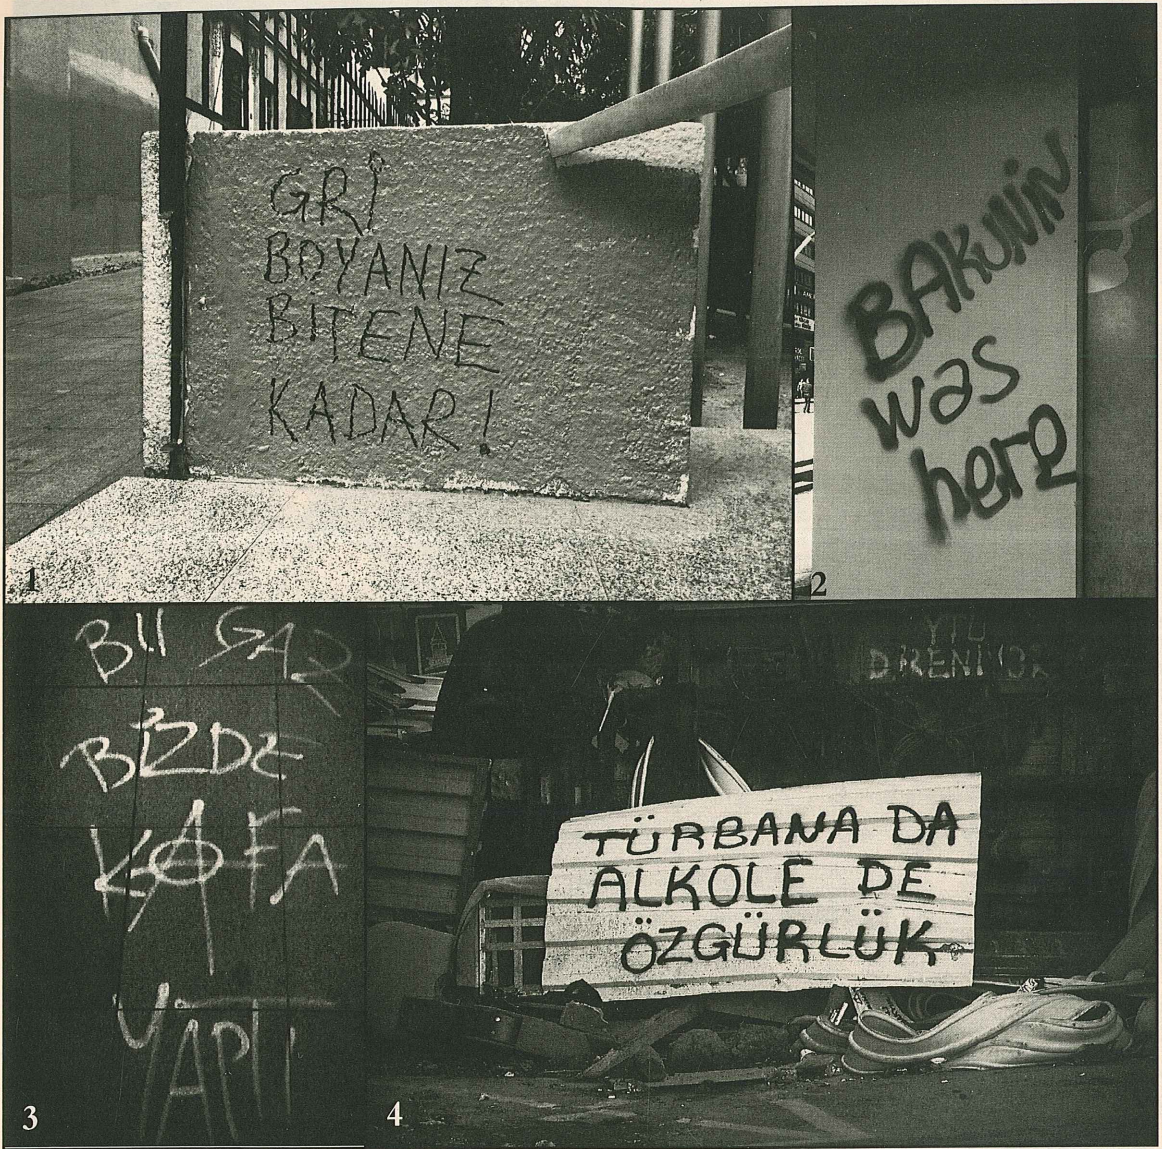 GRİ
BOYANIZ
BITENE
KADAR!
1
BAKUNİN
was
here
2
BU GAZ
BİZDE
KAFA
YAPTI
3
DİRENİYOR
TÜRBANA DA
ALKOLE DE
ÖZGÜRLÜK
4